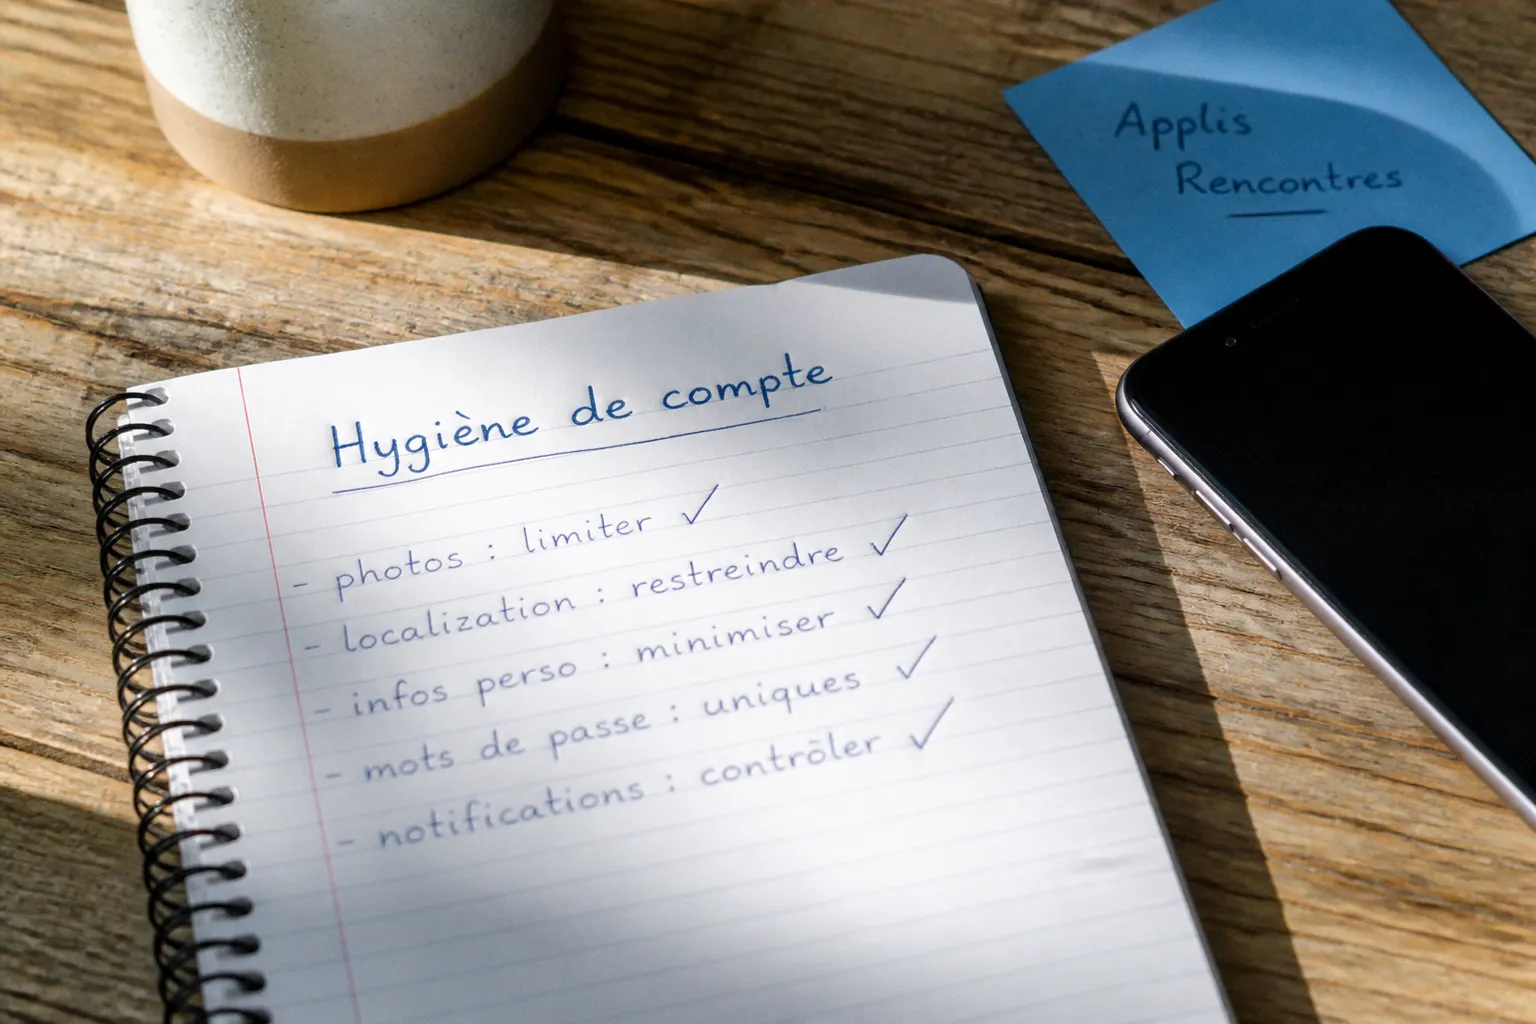 Applis
Rencontres
Hygiène de compte
- photos : limiter ✓
- localization : restreindre ✓
- infos perso : minimiser ✓
- mots de passe : uniques ✓
- notifications : contrôler ✓